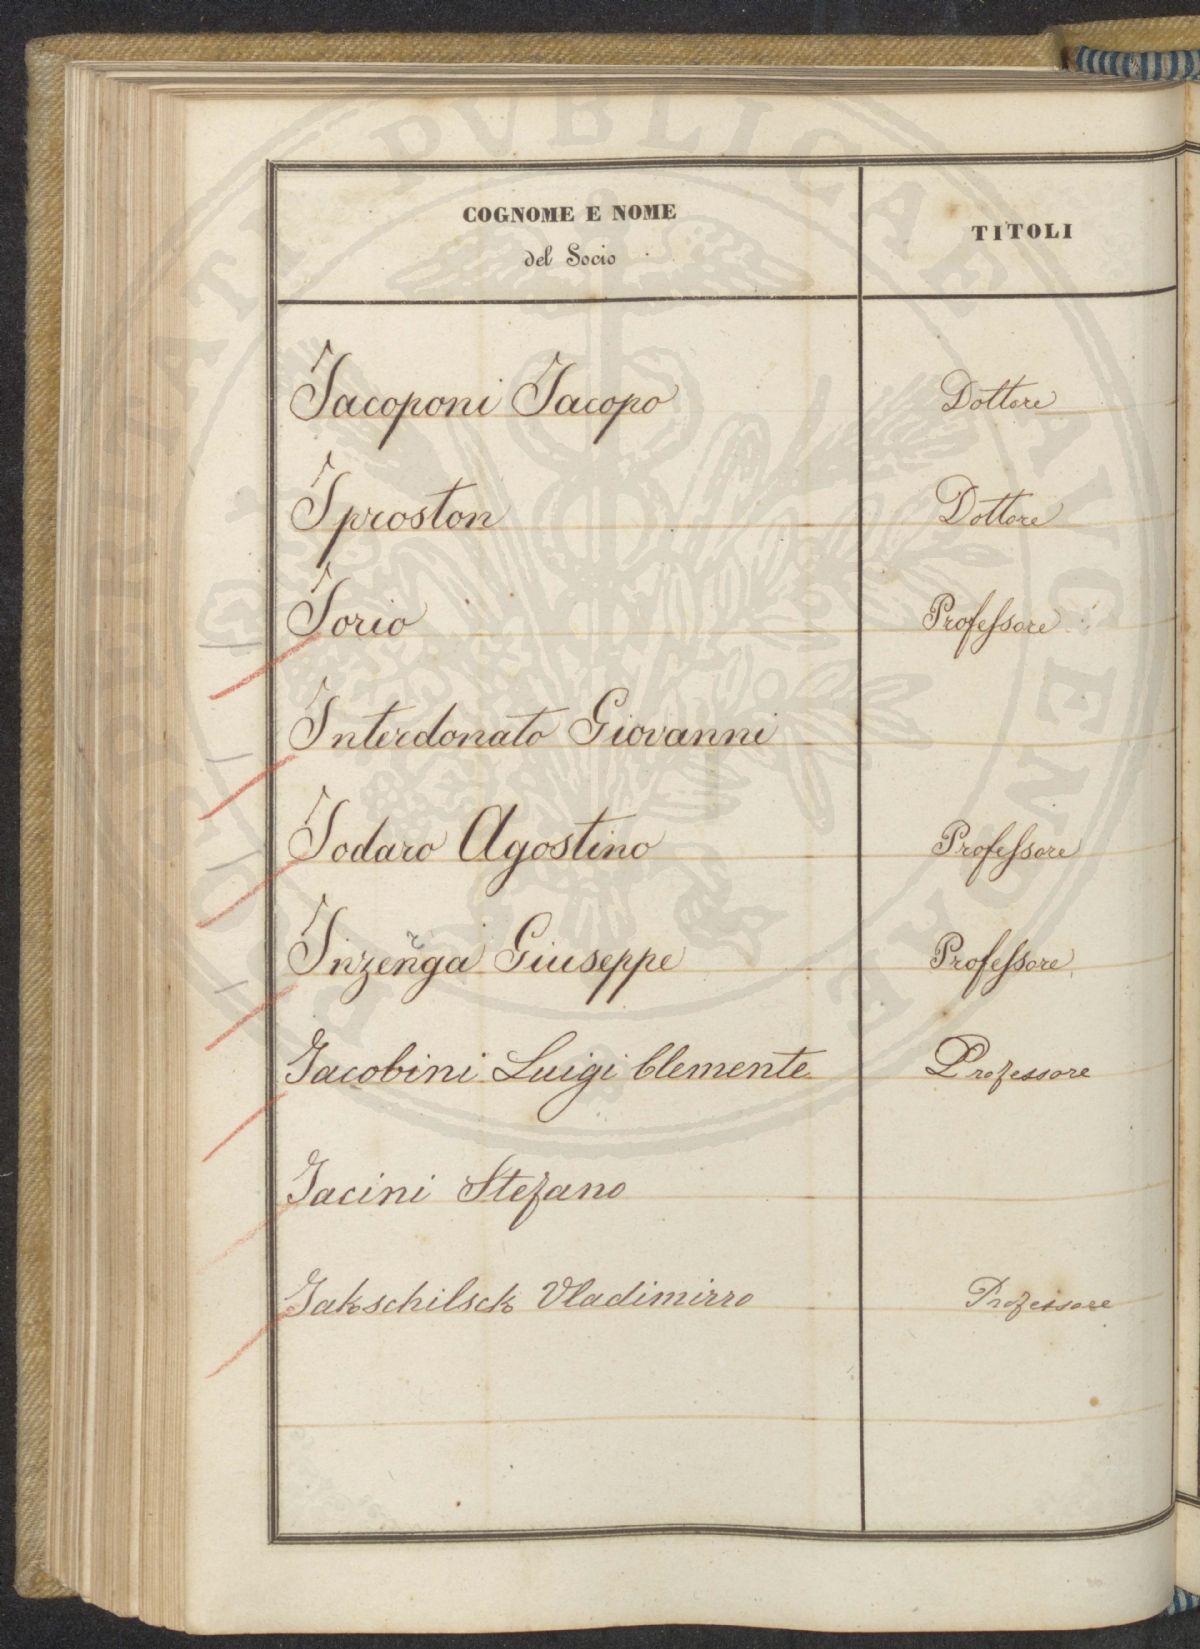 COGNOME E NOME
del Socio
TITOLI
Jacoponi Jacopo Dottore
Iproston Dottore
Iorio Professore
Interdonato Giovanni
Iodaro Agostino Professore
Inzenga Giuseppe Professore
Jacobini Luigi Clemente Professore
Jacini Stefano
Jakschilsck Vladimirro Professore